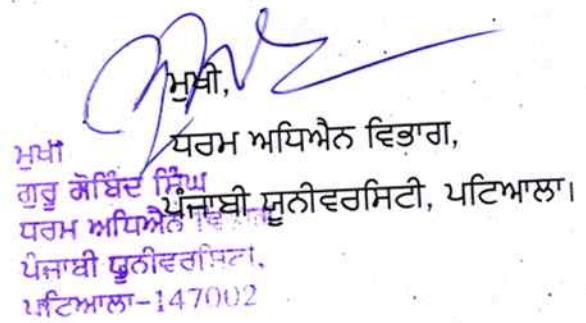 ਮੁਖੀ,
ਧਰਮ ਅਧਿਐਨ ਵਿਭਾਗ,
ਪੰਜਾਬੀ ਯੂਨੀਵਰਸਿਟੀ, ਪਟਿਆਲਾ।
ਮੁਖੀ
ਗੁਰੂ ਗੋਬਿੰਦ ਸਿੰਘ
ਧਰਮ ਅਧਿਐਨ
ਪੰਜਾਬੀ ਯੂਨੀਵਰਸਿਟੀ,
ਪਟਿਆਲਾ-147002